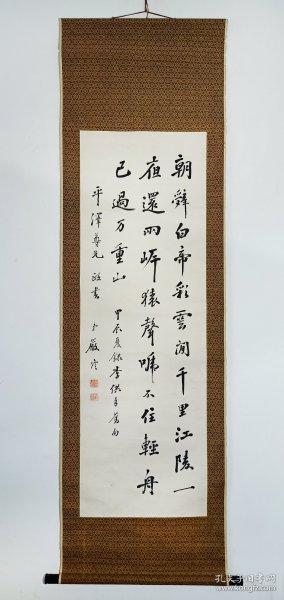 朝辭白帝彩雲間千里江陵一
夜還兩岸猿聲啼不住輕舟
已過万重山 甲辰夏錄李供奉舊句
平澤尊兄 政書
孔夫子旧书网